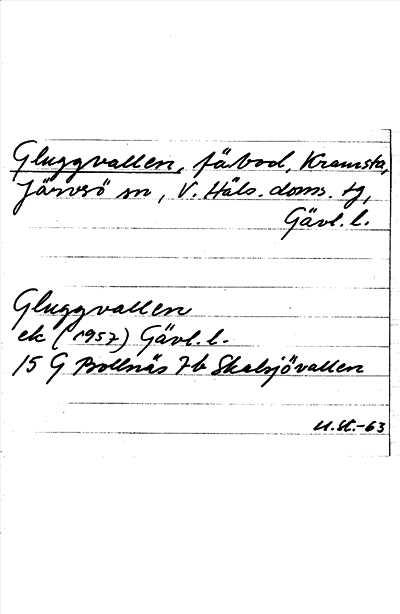 Gluggvallen, fäbod, Kramsta,
Järvsö sn, V. Häls. doms. tg,
Gävl. l.
Gluggvallen
ek (1957) Gävl. l.
15 G Bollnäs 7b Skalsjövallen
U.St.-63